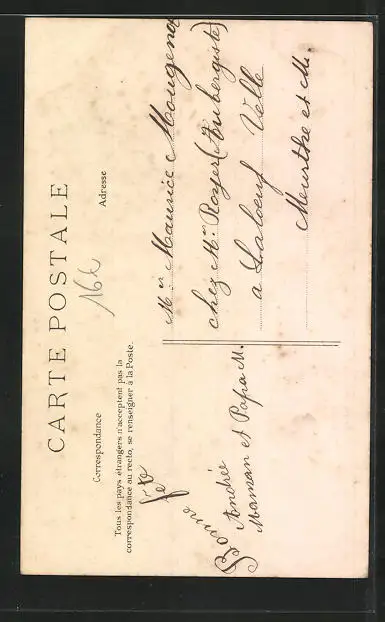 CARTE POSTALE
Correspondance
Adresse
Tous les pays étrangers n'acceptent pas la
correspondance au recto, se renseigner à la Poste.
16 k
Bonne fête
Andrée
Maman et Papa M.
Mr. Maurice Mougenot
chez Mr Royer (Aubergiste)
a Laloeuf Velle
Meurthe et M.